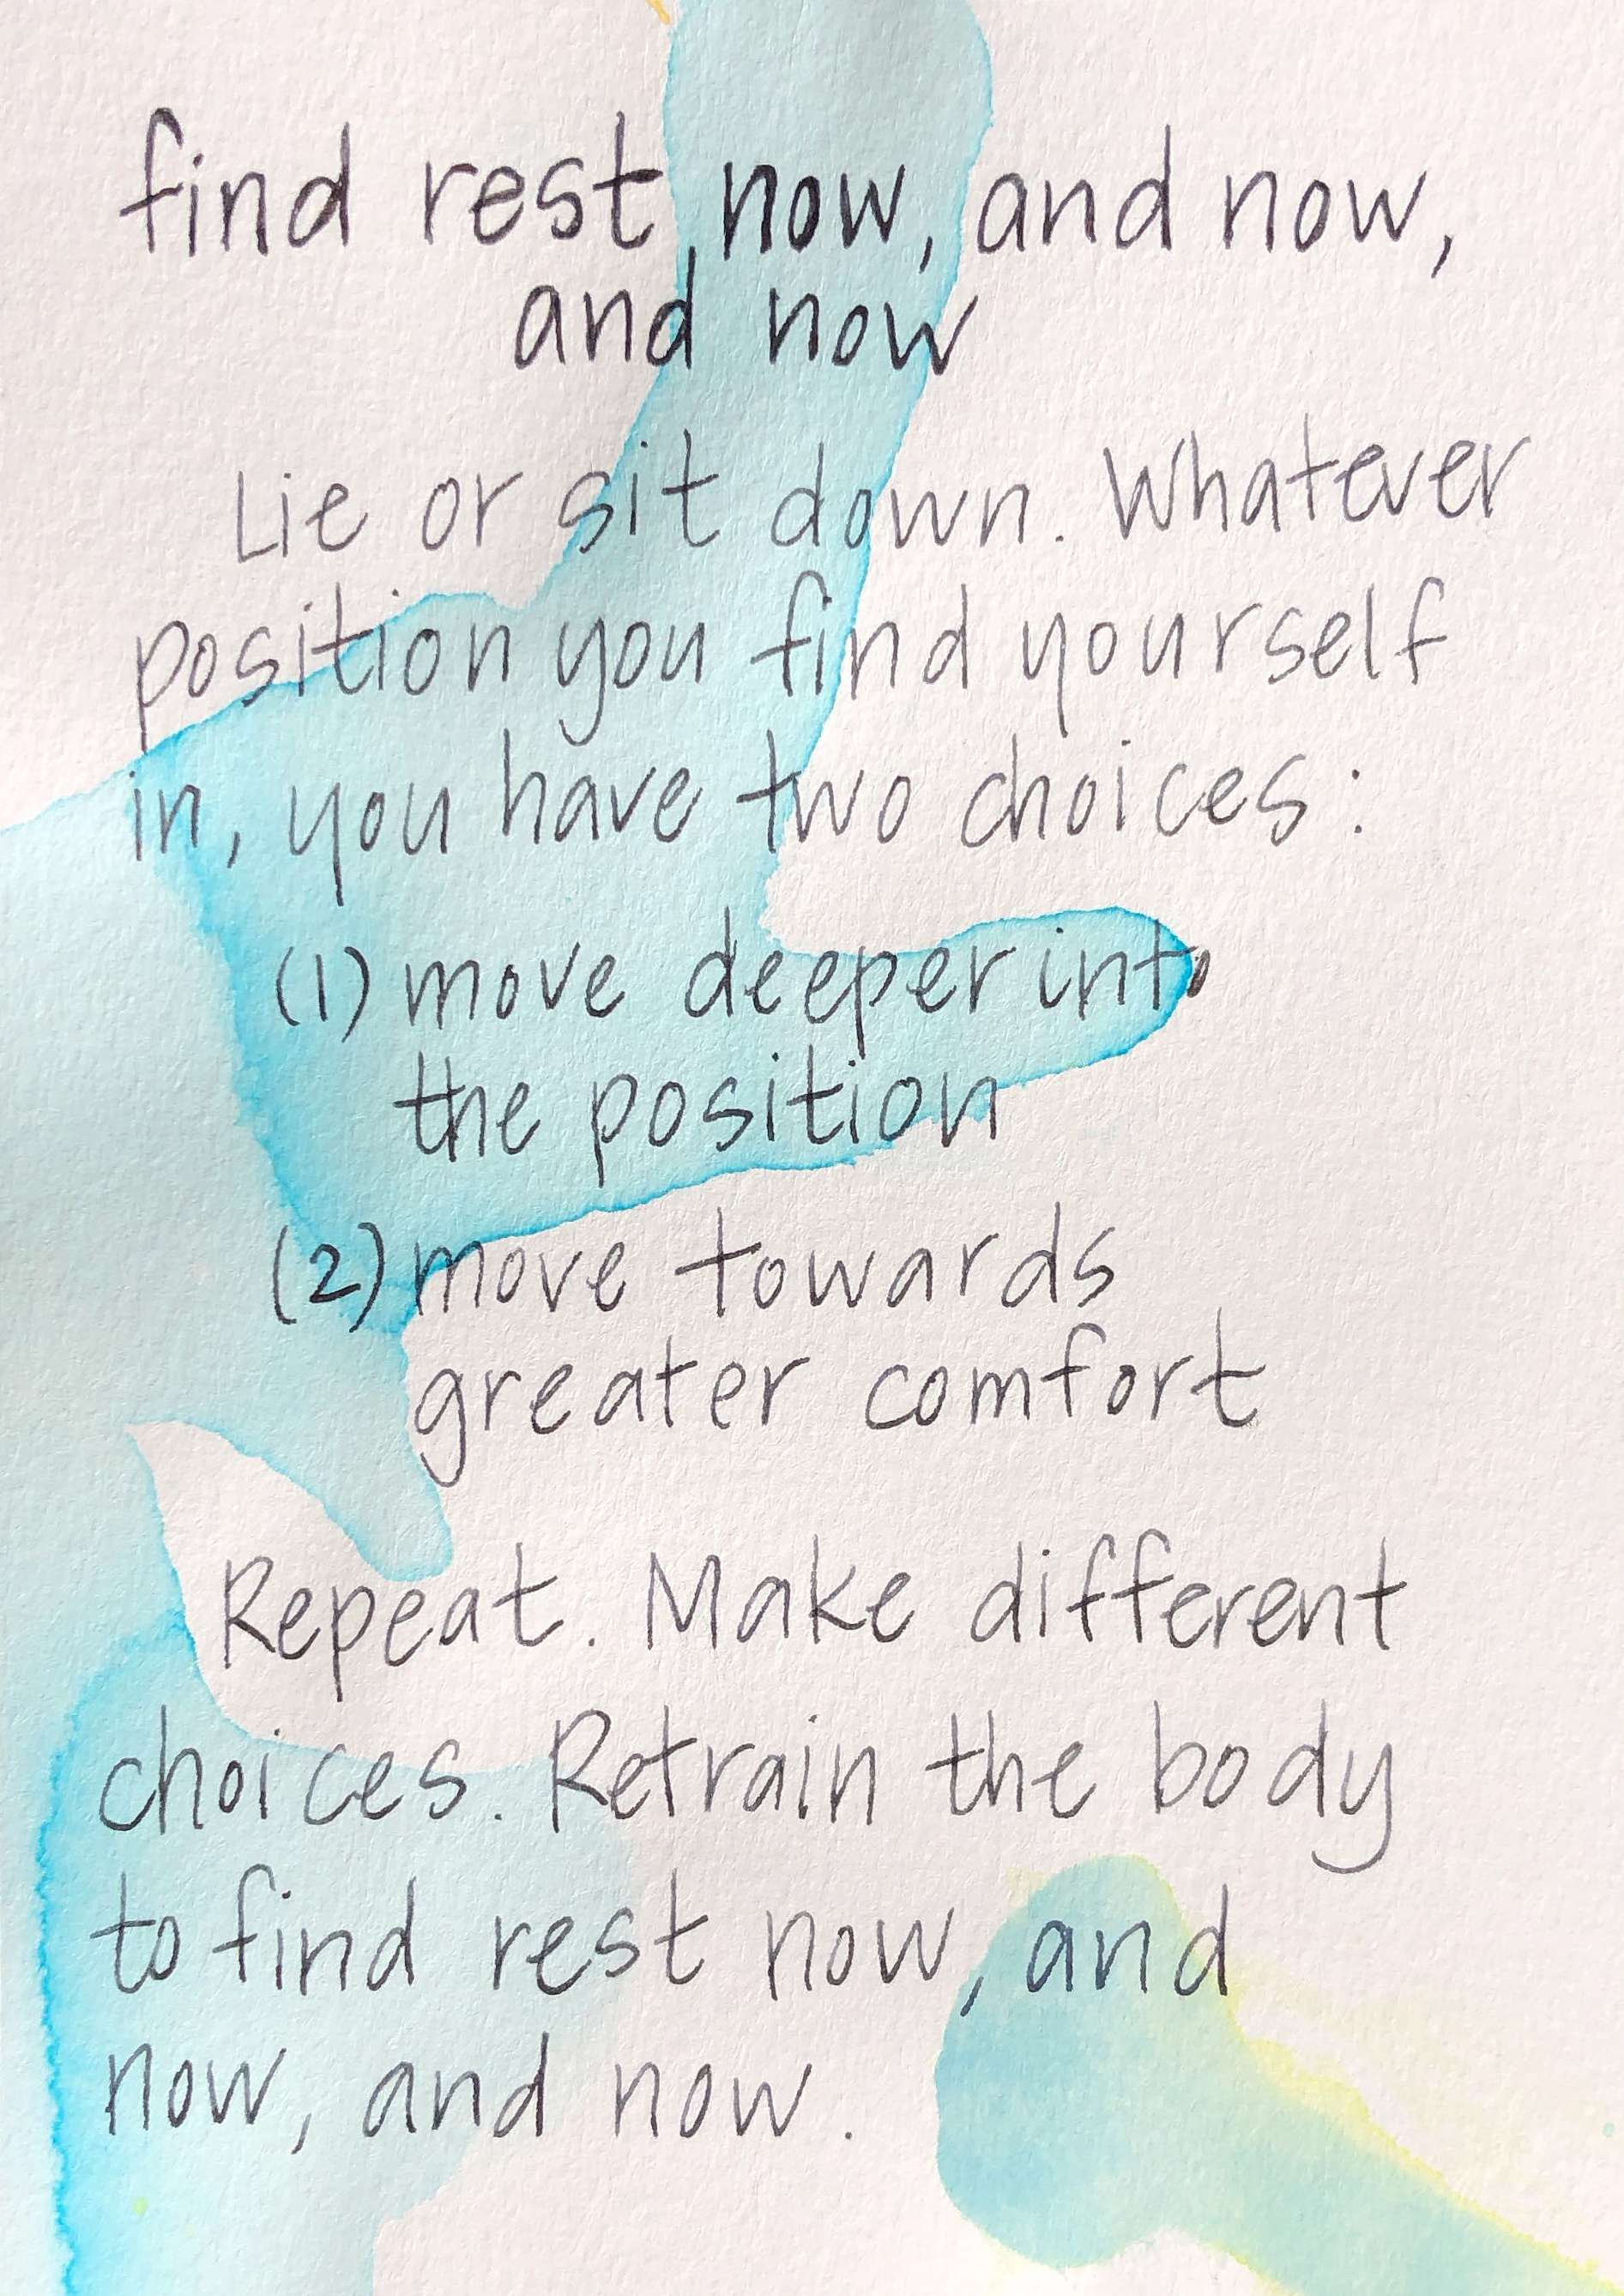 find rest, now, and now,
and now
Lie or sit down. Whatever
position you find yourself
in, you have two choices:
(1) move deeper into
the position
(2) move towards
greater comfort
Repeat. Make different
choices. Retrain the body
to find rest now, and
now, and now.